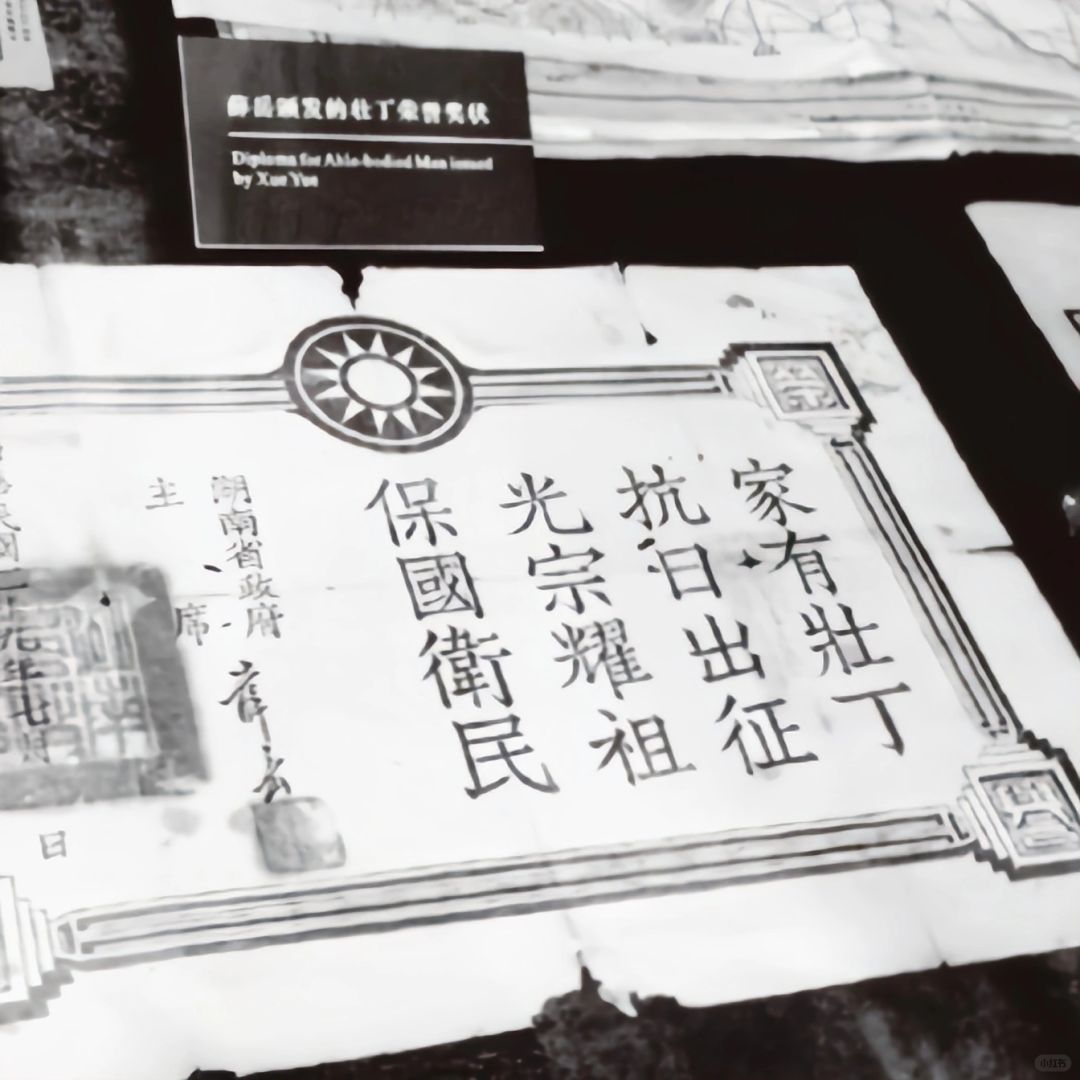 薛岳颁发的壮丁荣誉奖状
Diploma for Able-bodied Men issued
by Xue Yue
家有壯丁
抗日出征
光宗耀祖
保國衛民
湖南省政府
主席
薛岳
民國二十九年七月
日